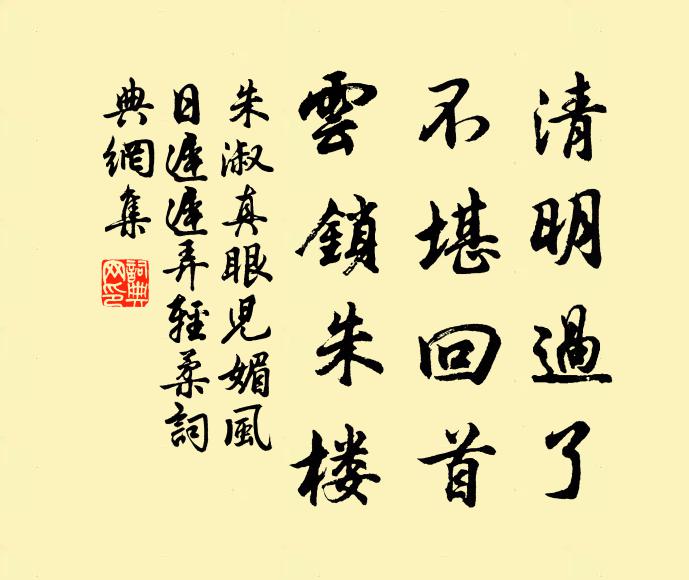 清明過了
不堪回首
雲鎖朱楼
朱淑真眼兒媚風
日遲遲弄輕柔詞
典網集
詞典網印